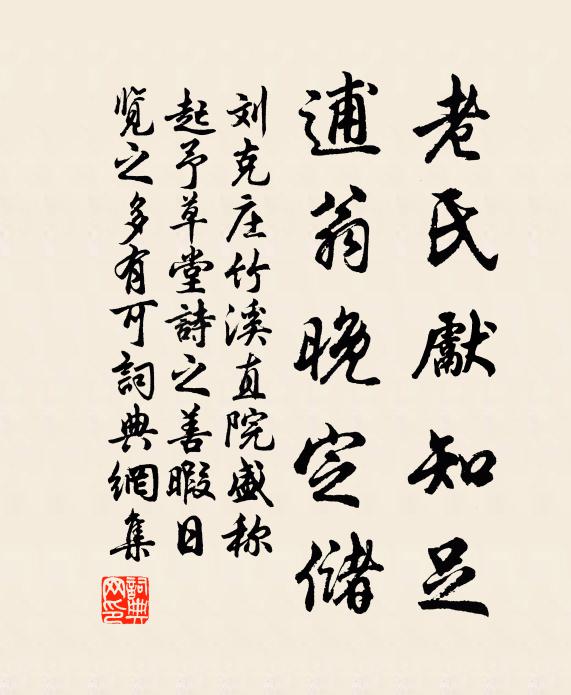 老氏獻知足
逋翁晚定儲
刘克庄竹溪直院盛称
起予草堂詩之善暇日
览之多有可詞典網集
詞典网印